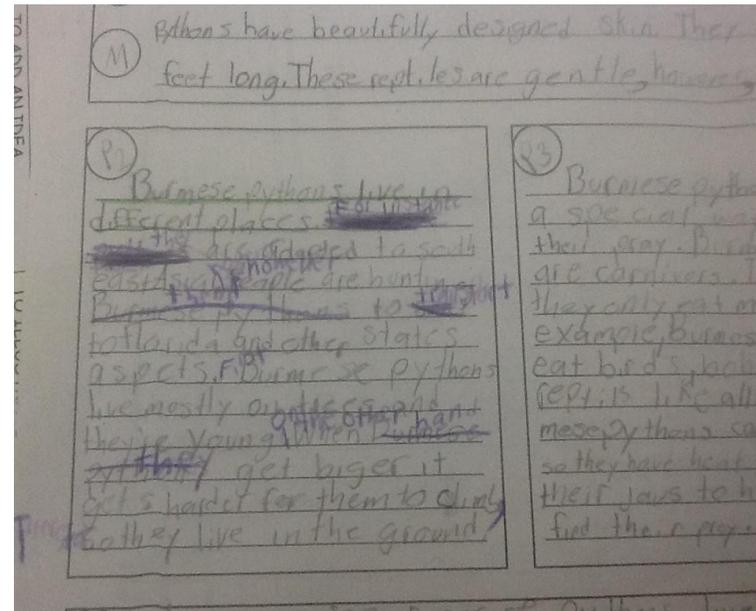 TO ADD AN IDEA
M
Pythons have beautifully designed skin. They
feet long. These reptiles are gentle, however,
P2
Burmese pythons live in
different places. For instance
they are adapted to south
east Asia however people are hunting
Burmese pythons them to transport
to florida and other states
aspects. First Burmese pythons
live mostly on trees and
they're young. on the other hand When Burmese
pythons they get biger it
gets harder for them to climb,
so they live in the ground.
P3
Burmese pytho
a special wa
their pray. Burm
are carnivers.
they only eat m
example, burmes
eat birds, bob
reptils like all
mese pythons ca
so they have heat
their jaws to h
find their pray.